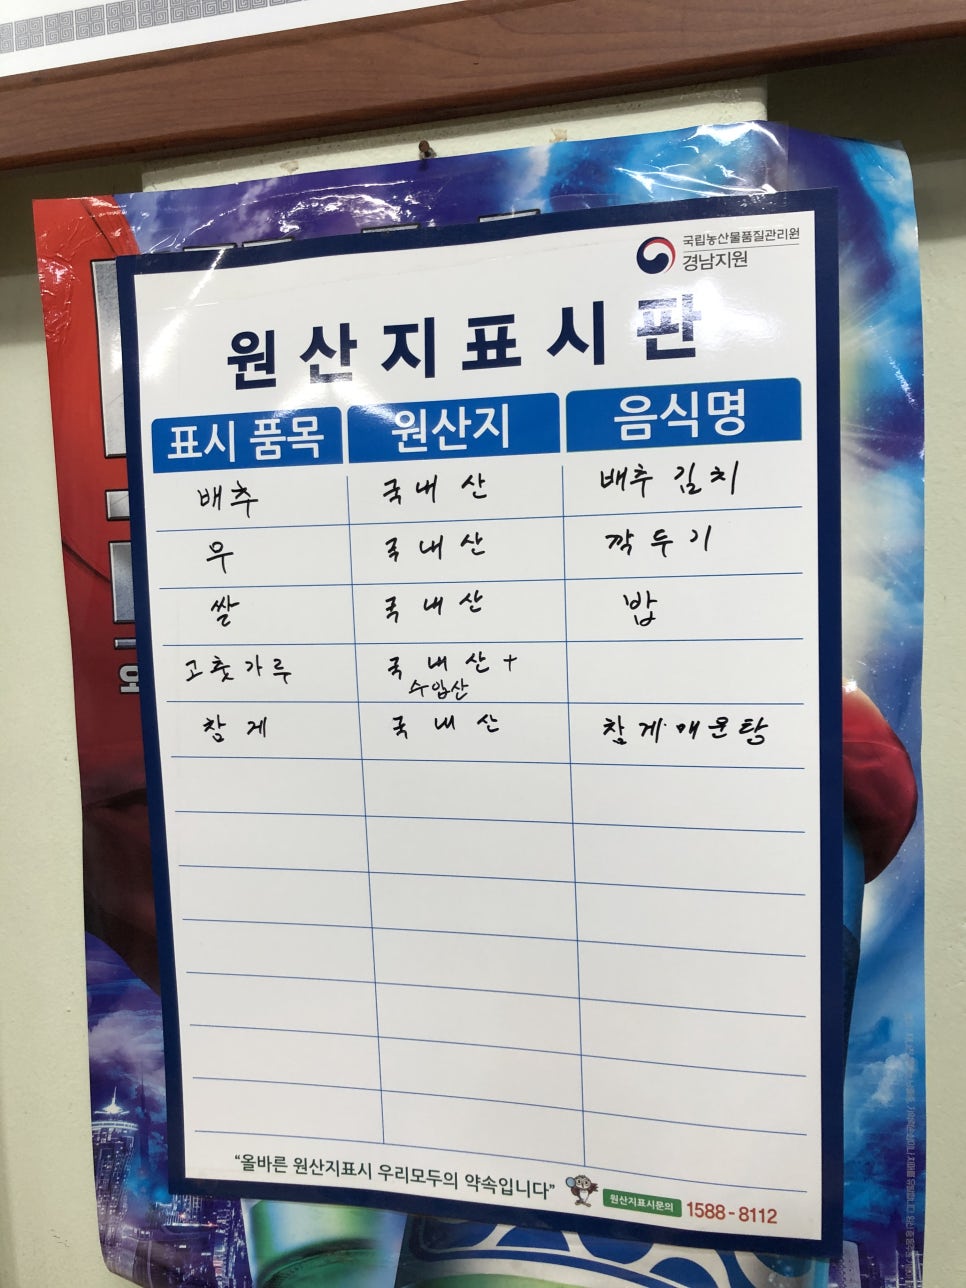 국립농산물품질관리원
경남지원
원산지표시판
표시 품목 원산지 음식명
배추 국내산 배추김치
우 국내산 깍두기
쌀 국내산 밥
고춧가루 국내산+
수입산
참게 국내산 참게매운탕
"올바른 원산지표시 우리모두의 약속입니다" 원산지표시문의 1588-8112